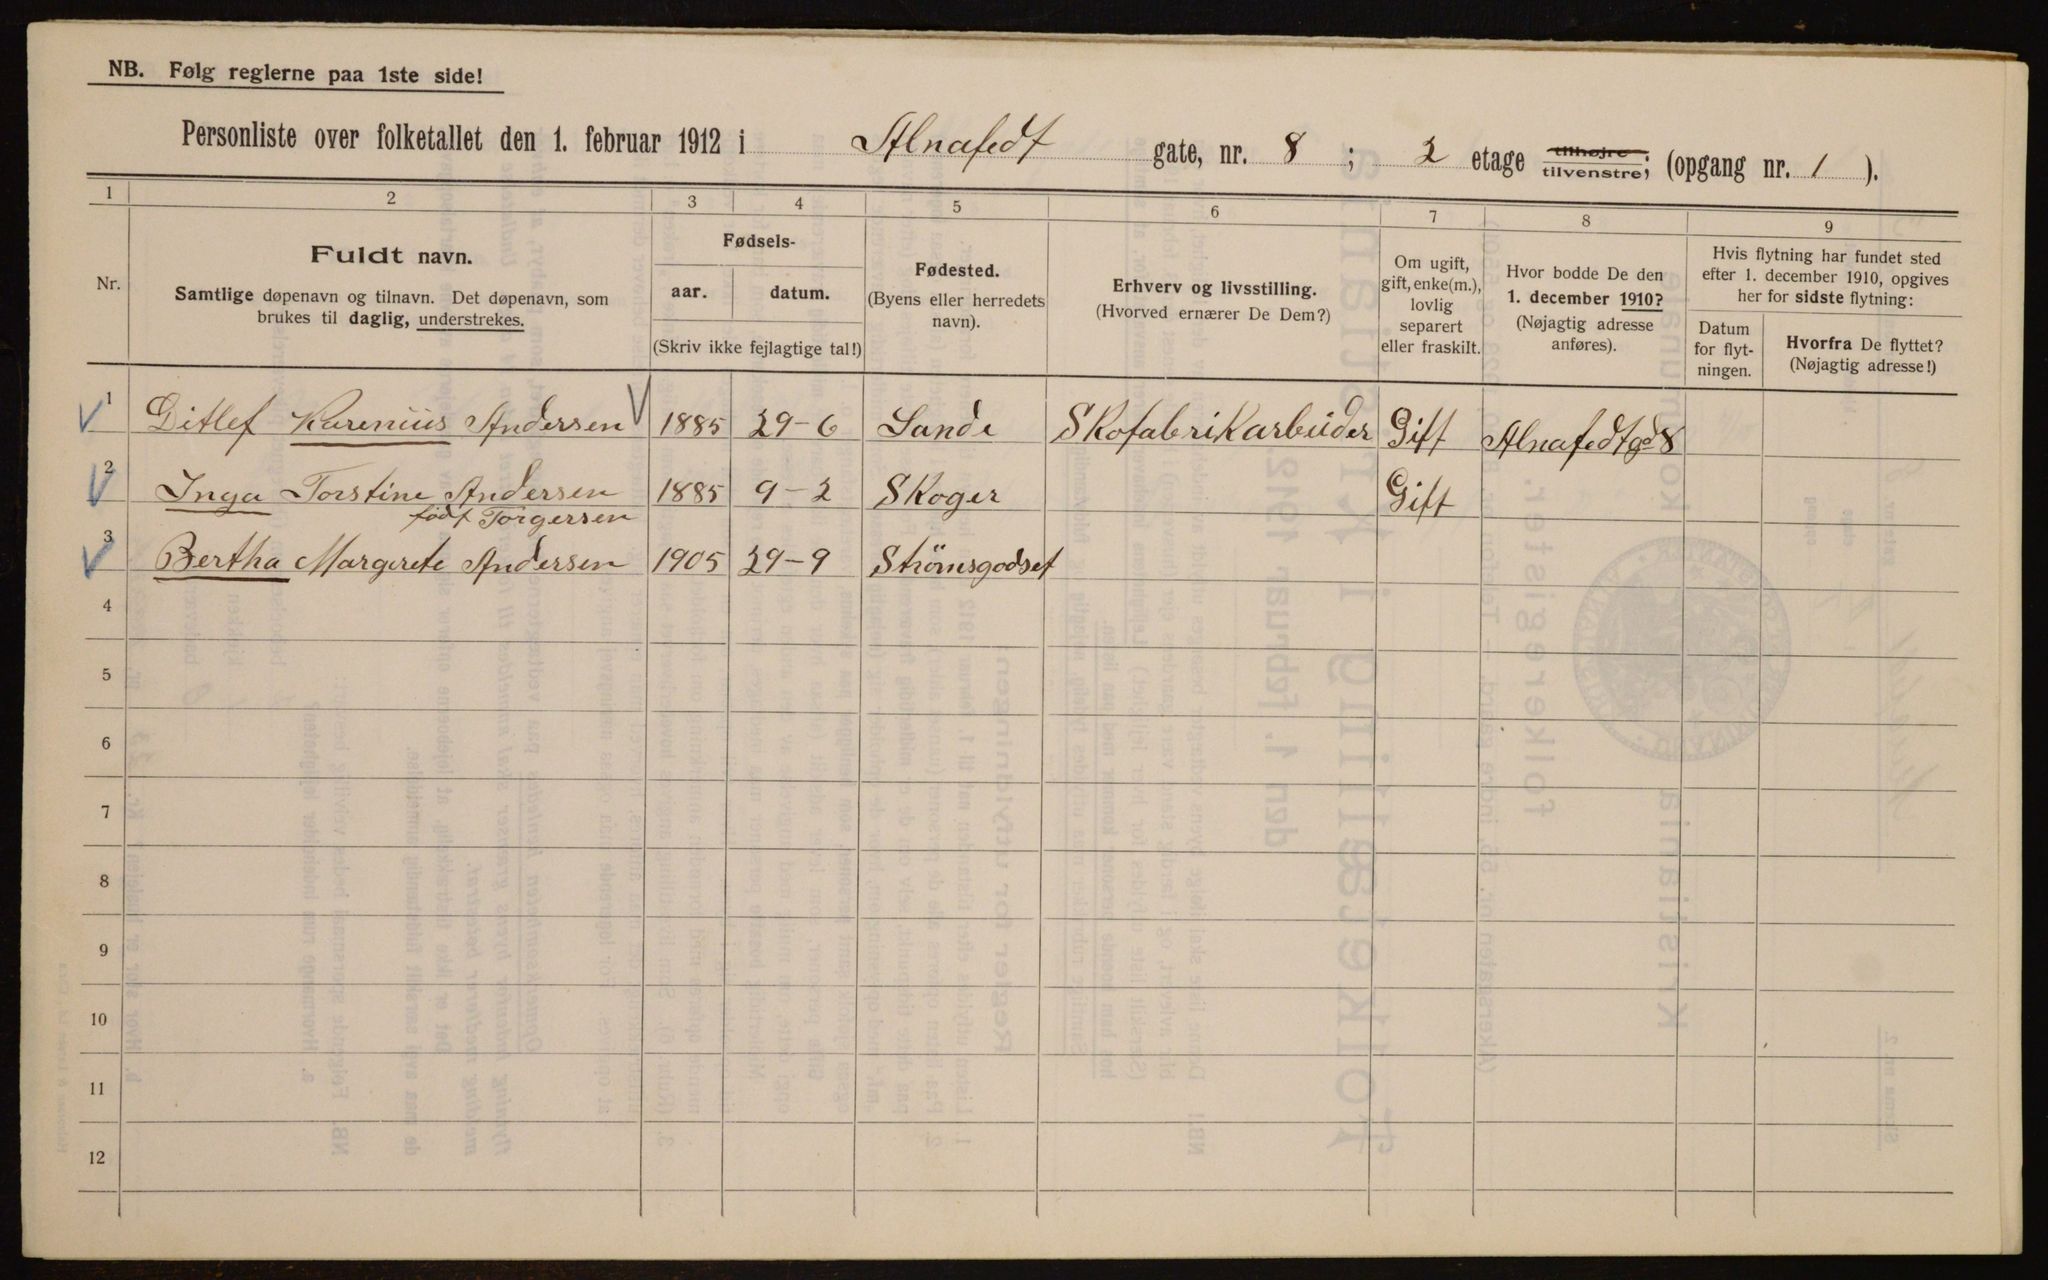 NB. Følg reglerne paa 1ste side!
Personliste over folketallet den 1. februar 1912 i Alnafedt gate, nr. 8 ; 2 etage tilhøjre tilvenstre; (opgang nr. 1 ).
1 2 3 4 5 6 7 8 9
Nr.
Fuldt navn.
Samtlige døpenavn og tilnavn. Det døpenavn, som
brukes til daglig, understrekes.
Fødsels-
aar. datum.
(Skriv ikke fejlagtige tal!)
Fødested.
(Byens eller herredets
navn).
Erhverv og livsstilling.
(Hvorved ernærer De Dem?)
Om ugift,
gift, enke(m.),
lovlig
separert
eller fraskilt.
Hvor bodde De den
1. december 1910?
(Nøjagtig adresse
anføres).
Hvis flytning har fundet sted
efter 1. december 1910, opgives
her for sidste flytning:
Datum
for flyt-
ningen.
Hvorfra De flyttet?
(Nøjagtig adresse!)
1 Ditlef Karenius Andersen 1885 29-6 Sande Skofabrikarbeider Gift Alnafedtgd 8
2 Inga Torstine Andersen 1885 9-2 Skoger Gift
født Torgersen
3 Bertha Margrete Andersen 1905 29-9 Strømsgodset
4
5
6
7
8
9
10
11
12